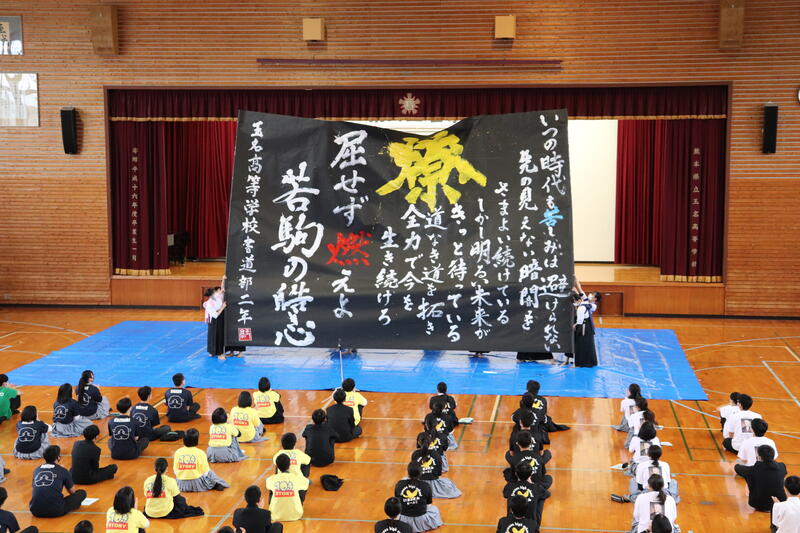 いつの時代も苦しみは避けられない
先の見えない暗闇を
さまよい続けている
しかし明るい未来が
きっと待っている
道なき道を拓き
全力で今を
生き続けろ
燎
屈せず燃えよ
若駒の皓心
玉名高等学校書道部二年
熊本県立玉名高等学校
寄贈平成十六年度卒業生一同
STORY
STORY